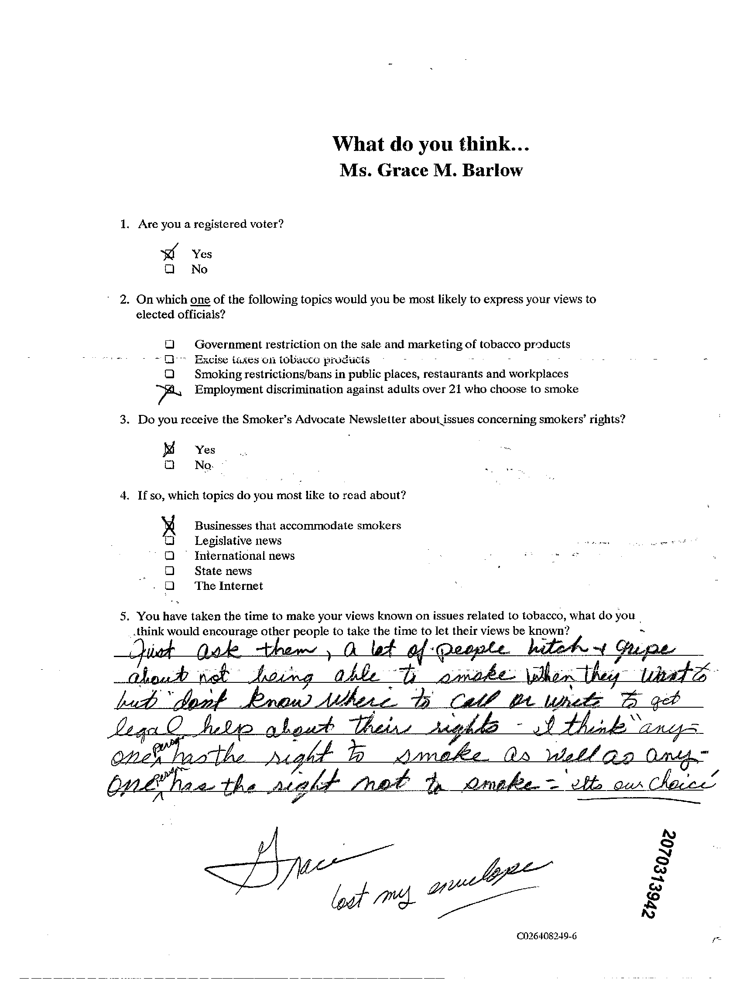 What do you think...
Ms. Grace M. Barlow
1. Are you a registered voter?
Yes
No
2. On which one of the following topics would you be most likely to express your views to
elected officials?
Government restriction on the sale and marketing of tobacco products
Excise taxes on tobacco products
Smoking restrictions/bans in public places, restaurants and workplaces
Employment discrimination against adults over 21 who choose to smoke
3. Do you receive the Smoker's Advocate Newsletter about issues concerning smokers' rights?
Yes
No
4. If so, which topics do you most like to read about?
Businesses that accommodate smokers
Legislative news
International news
State news
The Internet
5. You have taken the time to make your views known on issues related to tobacco, what do you
think would encourage other people to take the time to let their views be known?
Just ask them, a lot of people bitch & gripe
about not being able to smoke when they want to
but don't know where to call or write to get
legal help about their rights - I think "any-
one person has the right to smoke as well as any-
one person has the right not to smoke - its our choice
Grace
lost my envelope
2070313942
C026408249-6